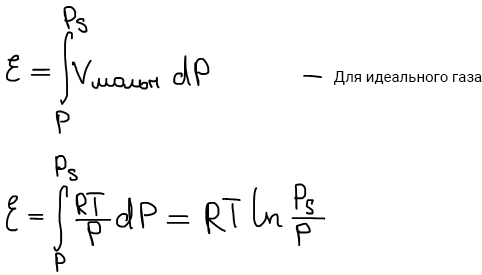 ℰ = ∫_P^{P_s} V_{мольн} dP — Для идеального газа
ℰ = ∫_P^{P_s} \frac{RT}{P} dP = RT ln \frac{P_s}{P}